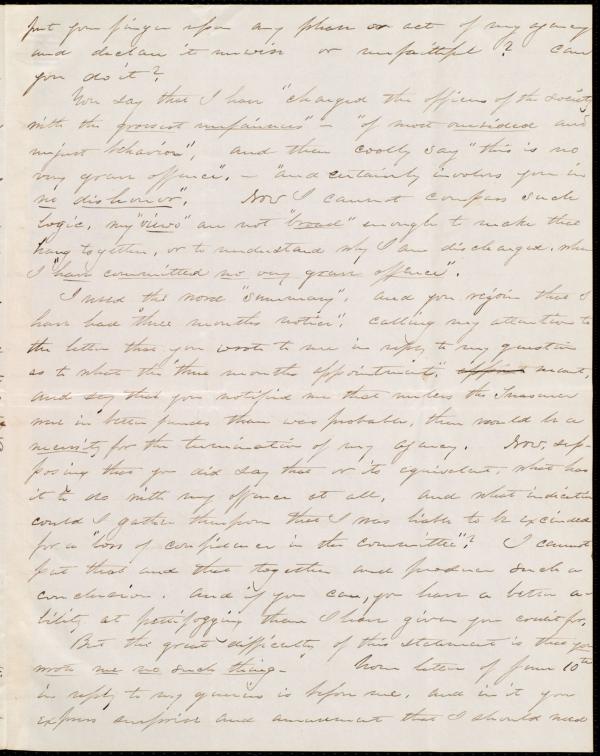 put your finger upon any phase or act of my agency
and declare it unwise or unfaithful? can
you do it?
You say that I have "charged the officers of the society
with the grossest unfairness" – "of most onesided and
unjust behavior", and then coolly say "this is no
very grave offence". – "and certainly involves you in
no dishonor". Now I cannot compass such
logic, my "views" are not "broad" enough to make that
hang together, or to understand why I am discharged, when
I "have committed no very grave offence".
I used the word "summary", and you rejoin that I
have had "three months notice", calling my attention to
the letter that you wrote to me in reply to my question
as to what the "three months appointment," meant,
and say that you notified me that unless the Treasurer
were in better funds than was probable, there would be a
necessity for the termination of my agency. Now, sup-
posing that you did say that or its equivalent, what has
it to do with my offence at all, and what indication
could I gather therefrom that I was liable to be excinded
for a "loss of confidence in the committee"? I cannot
put that and that together and produce such a
conclusion. And if you can, you have a better a-
bility at pettifogging than I have given you credit for.
But the great difficulty of this statement is that you
wrote me no such thing. Your letter of June 10th
in reply to my queries is before me, and in it you
express surprise and amusement that I should need